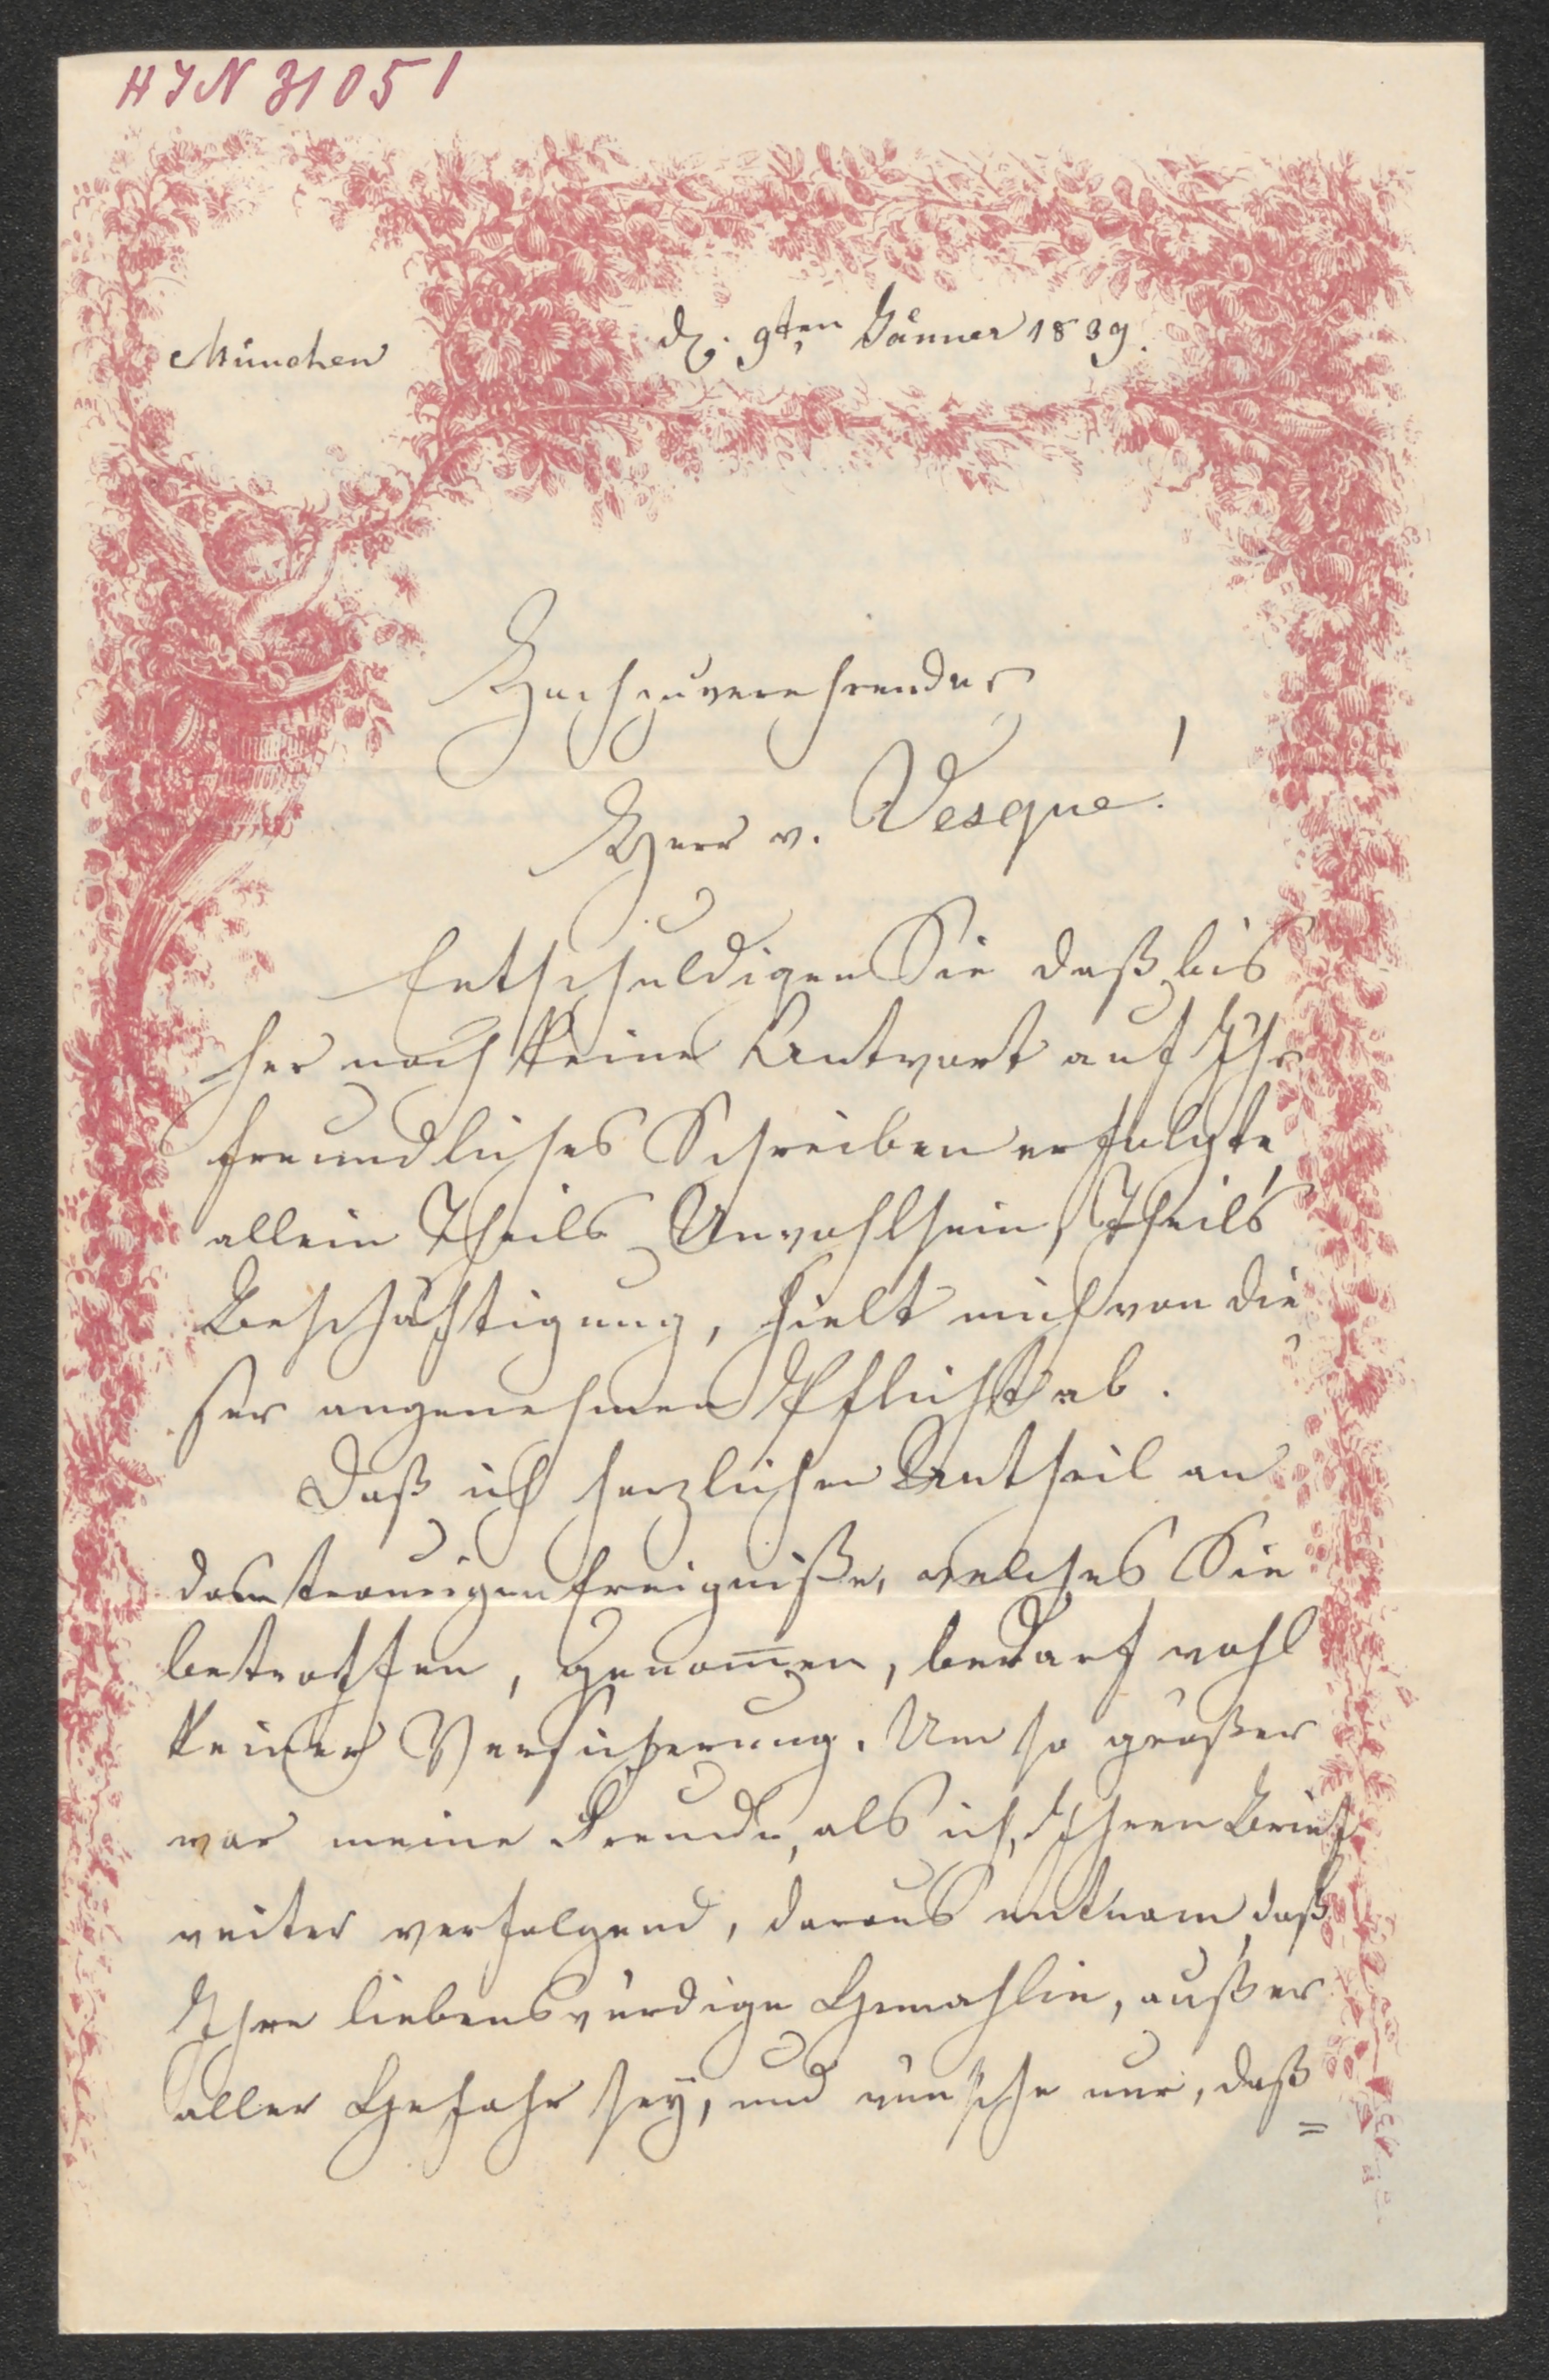 HIN 31051
München
d. 9ten Jänner 1839.
Hochzuverehrender
Herr v. Vesque!
Entschuldigen Sie daß bis
her noch keine Antwort auf Ihr
freundliches Schreiben erfolgte,
allein Theils Unwohlsein, Theils
Beschäftigung, hielt mich von die
ser angenehmen Pflicht ab.
Daß ich herzlichen Antheil an
dem traurigen Ereigniße, welches Sie
betroffen, genom̅en, bedarf wohl
keiner Versicherung. Um so größer
war meine Freude, als ich, Ihren Brief
weiter verfolgend, daraus entnam, daß
Ihre liebenswürdige Gemahlin, außer
aller Gefahr sey, und wünsche nur, daß
=